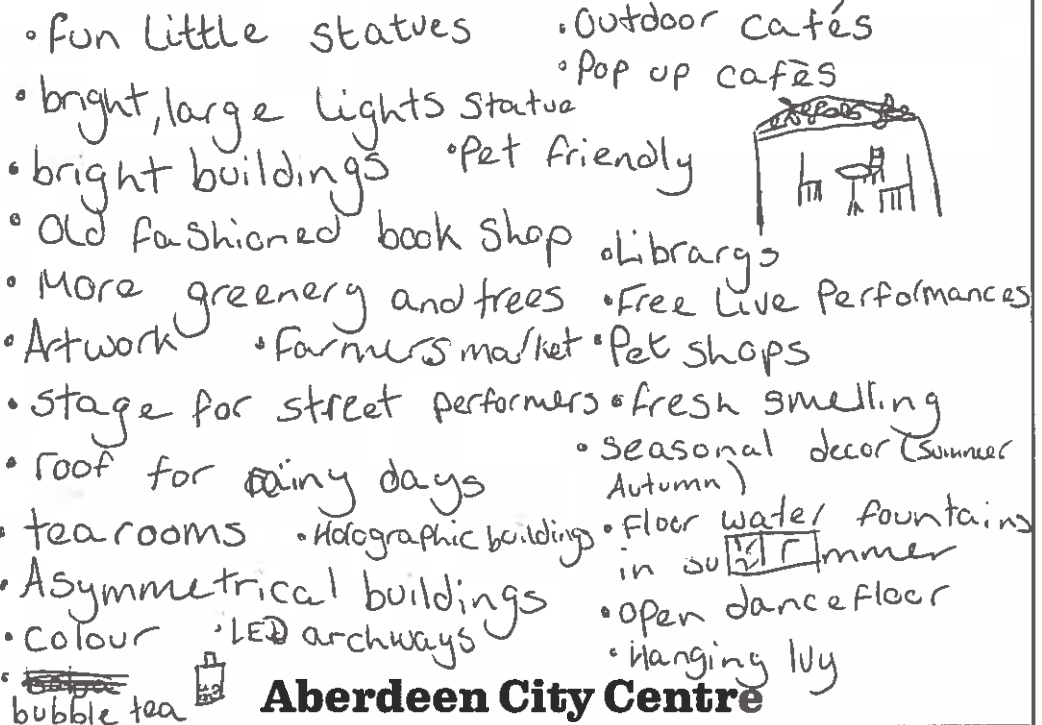 • fun little statues
• bright, large lights statue
• bright buildings
• Pet friendly
• Old fashioned book shop
• More greenery and trees
• Artwork
• farmers market
• stage for street performers
• roof for rainy days
• tea rooms
• Holographic buildings
• Asymmetrical buildings
• Colour
• LED archways
• bubble tea
• Outdoor cafés
• Pop up cafès
• Librarys
• Free Live Performances
• Pet shops
• fresh smelling
• Seasonal decor (Summer
Autumn)
• Floor water fountains
in summer
• Open dancefloor
• Hanging Ivy
Aberdeen City Centre